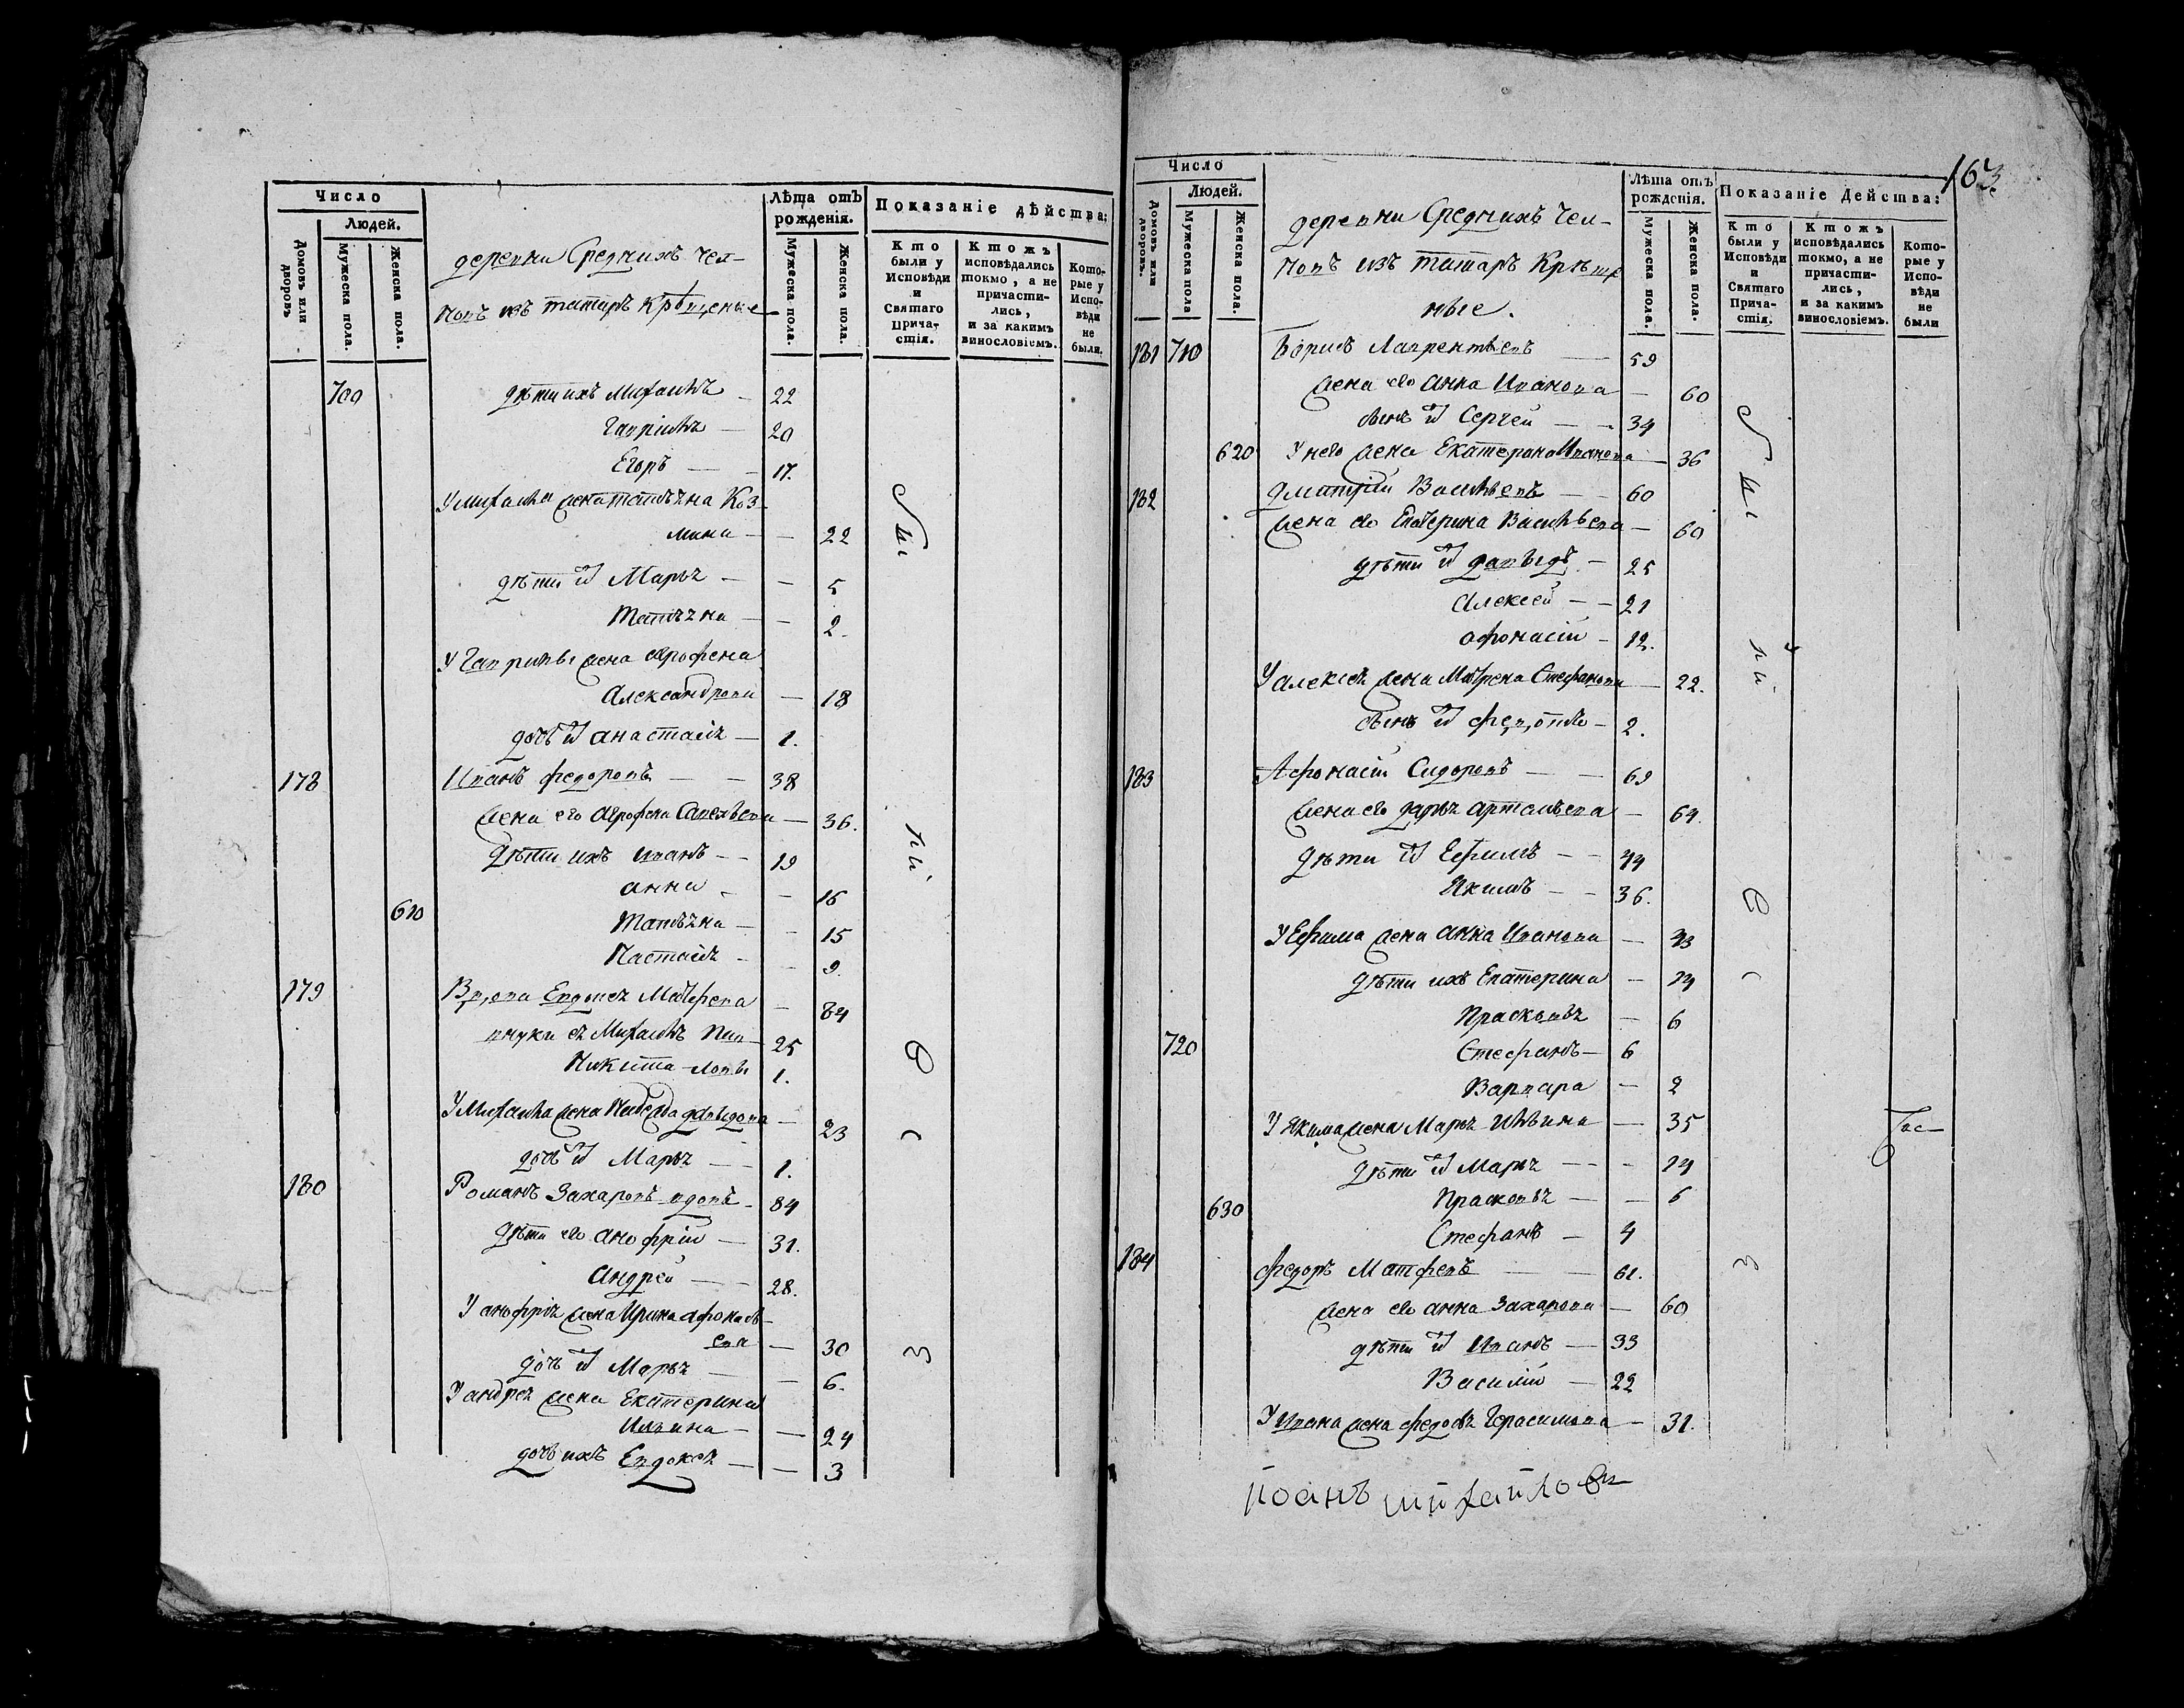 Число
Людей.
Домовъ или дворовъ
Мужеска пола.
Женска пола.
деревни Среднихъ Чел-
новъ изъ татаръ крѣщеные
Лѣта отъ рожденія.
Мужеска пола.
Женска пола.
Показаніе дѣйства:
Кто были у Исповѣди и Святаго Причастія.
Ктожъ исповѣдались токмо, а не причастились, и за какимъ винословіемъ.
Которые у Исповѣди не были.
700 дѣти ихъ Михаилъ — 22
Гаврилъ — 20
Егоръ — 17.
У Михаила жена татьяна Коз-
мина — 22
дѣти их Марья — 5
Татьяна — 2.
У Гаврилы жена аграфена
Александрова — 18
дочь их анастасія — 1.
178 Иванъ федоровъ — 38
жена его аграфена Савельева — 36.
дѣти ихъ иванъ — 19
анна — 16
610 Татьяна — 15
Настасія — 9.
179 Вдова Евдокея Матфева — 84
внуки ея Михаилъ Пав- 25
Никита -ловы 1.
У Михаила жена Надежда давыдова — 23
дочь их Марья — 1.
180 Романъ Захаровъ вдовъ — 84
дѣти его анофрій — 31.
Андрей — 28.
У анофрія жена Ирина афонась-
ева — 30
дочь их Марья — 6.
У андрея жена Екатерина
Ильина — 24
дочь ихъ Евдокея — 3
163
Число
Людей.
Домовъ или дворовъ.
Мужеска пола
Женска пола.
деревни Среднихъ Чел-
новъ изъ татаръ Крѣще
ные.
Лѣта отъ рожденія.
Мужеска пола.
Женска пола.
Показаніе Действа:
Кто были у Исповѣди и Святаго Причастія.
Ктожъ исповѣдались токмо, а не причастились, и за какимъ винословіемъ.
Которые у Исповѣди не были
181 710 Борисъ Лаврентьевъ — 59
жена его анна Иванова — 60
сынъ их Сергей — 34
620 У него жена Екатерина Иванова — 36
182 Дматрій Васильевъ — 60
жена его Екатерина Васильева — 60
дѣти их давыдъ — 25
Алексей — 21
афонасій — 12.
У алексея жена Матрена Стефанова — 22.
сынъ их — 2.
183 Афонасій Сидоровъ — 69
жена его дарья артемьева — 64.
дѣти их Ефимъ — 44
Якимъ — 36.
У Ефима жена анна Иванова — 43
дѣти ихъ Екатерина — 14
Прасковья — 6
720 Стефанъ — 6
Варвара — 2
У якима жена Марья Ильина — 35
дѣти их Марья — 14
Прасковья — 6
630 Стефанъ — 4
184 федоръ Матфевъ — 61.
жена его анна Захарова — 60
дѣти их Иванъ — 33
Василій — 22
У Ивана жена федосья Герасимова — 31.
иоанъ михайлов